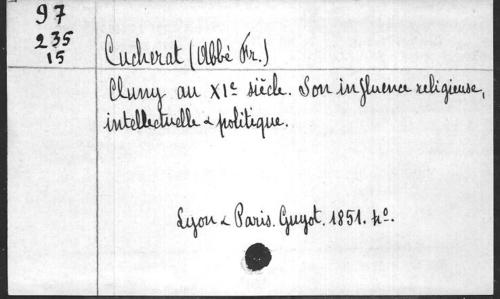 97
235
15
Cucherat (Abbé Fr.)
Cluny au XIe siècle. Son influence religieuse,
intellectuelle & politique.
Lyon & Paris. Guyot. 1851. 4o.